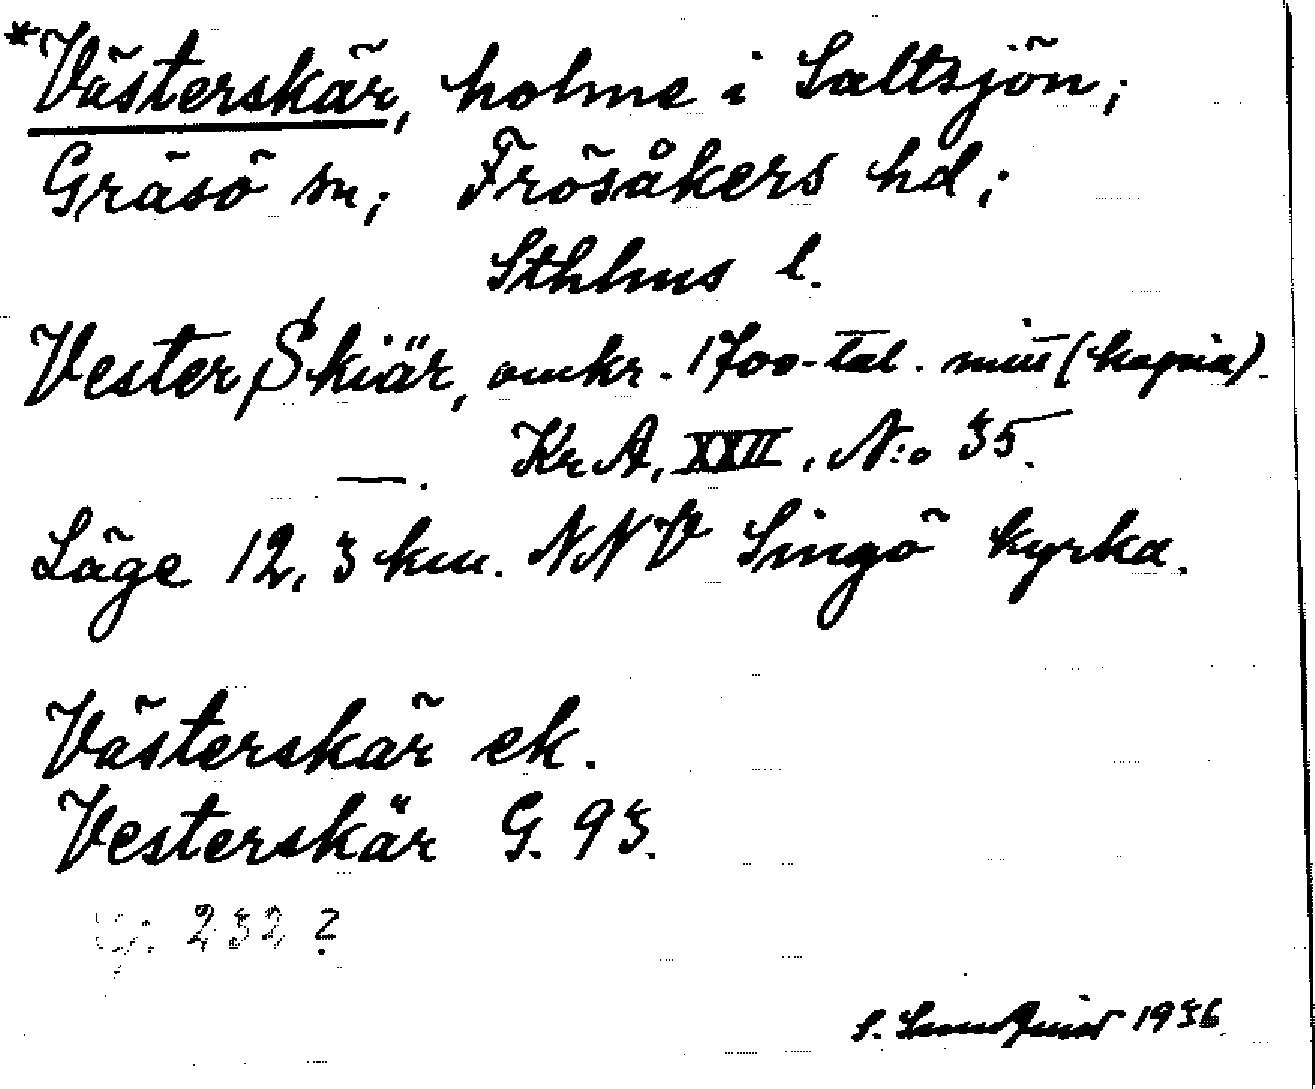 *Västerskär, holme i Saltsjön;
Gräsö sn; Frösåkers hd;
Sthlms l.
Vester Skiär, omkr. 1700-tal. mitt (kopia).
—. KrA, XXII, N:o 35.
Läge 12,3 km. NNV Singö kyrka.
Västerskär ek.
Vesterskär G. 93.
G. 232?
S. Sundqvist 1936